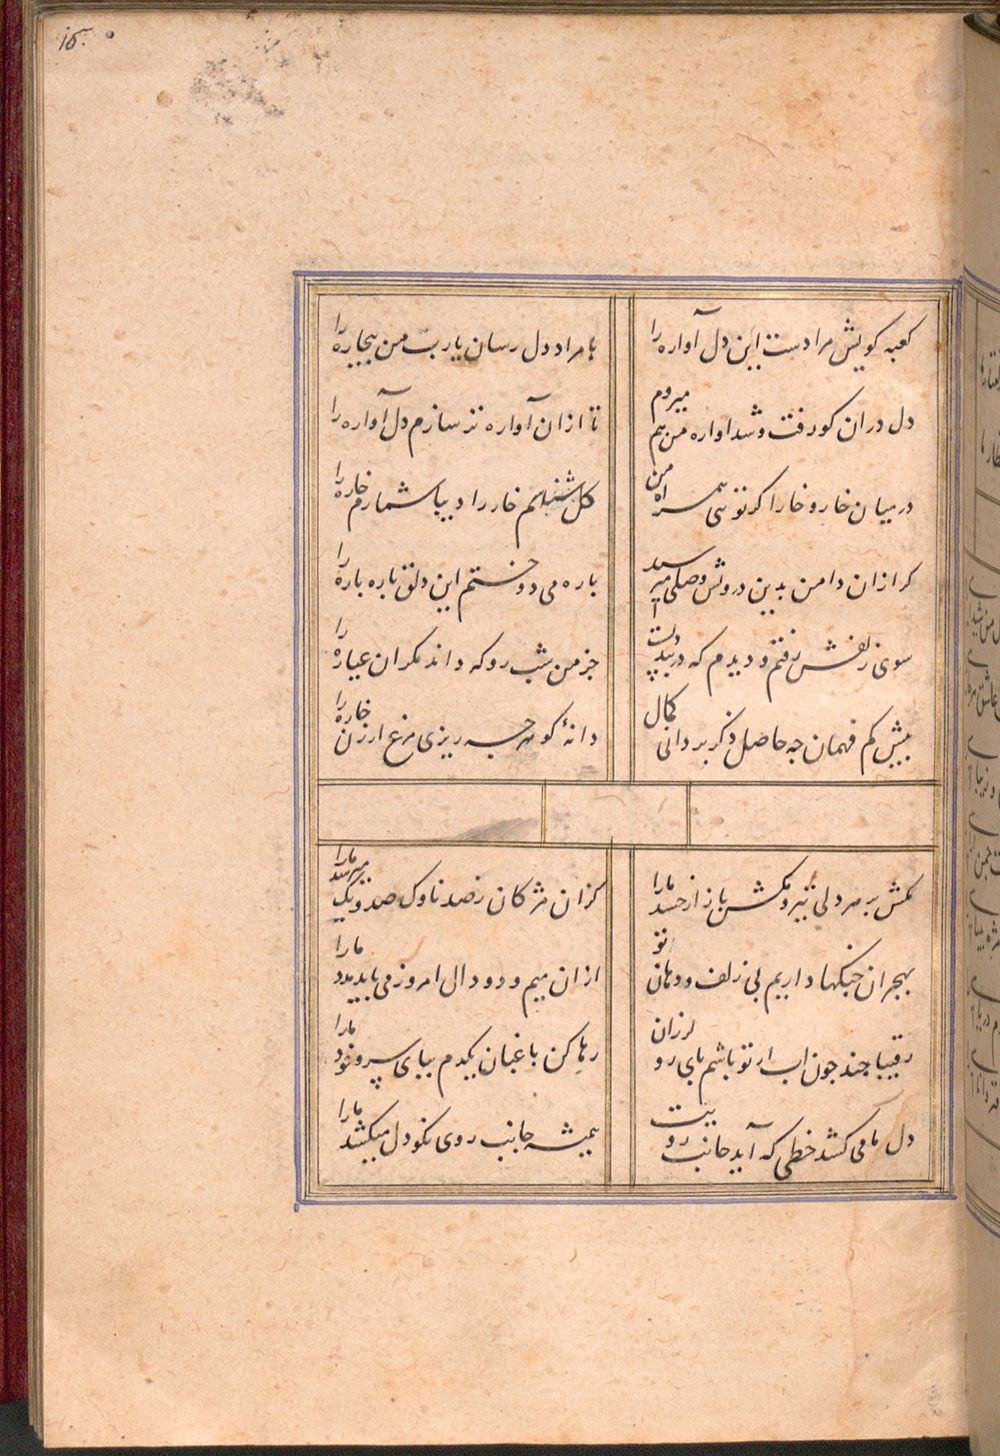 15.
کعبه کویش مرادست این دل آواره را
با مراد دل رسان یا رب من بیچاره را
دل دران کو رفت و شد اواره من هم میروم
تا ازان آواره تر سازم دل آواره را
در میان خار و خارا کر تویی همراه من
کل شناسم خار را دیبا شمارم خاره را
کر ازان دامن بدین درویش وصلی میرسید
باره می دوختم این دلق باره باره را
سوی زلفش رفتم و دیدم که در بند دلست
جز من شب رو که داند مکران عیاره را
بیش کم فهمان جه حاصل ذکر بردانی کمال
دانهٔ کوهر جه ریزی مرغ ارزن خاره را
مکش بر هر دلی تیر و مکش باز از حسد ما را
کزان مژکان ز صد ناوک صد و یک میرسد ما را
بهجران جنکها داریم بی زلف و دهان تو
ازان میم و دو دال امروز می باید مدد ما را
رقیبا جند جون اب از تو باشم بای رو لرزان
رها کن باغبان یکدم ببای سرو خود ما را
دل ما می کشد خطی که آید جانب رویت
همیشه جانب روی نکو دل میکشد ما را